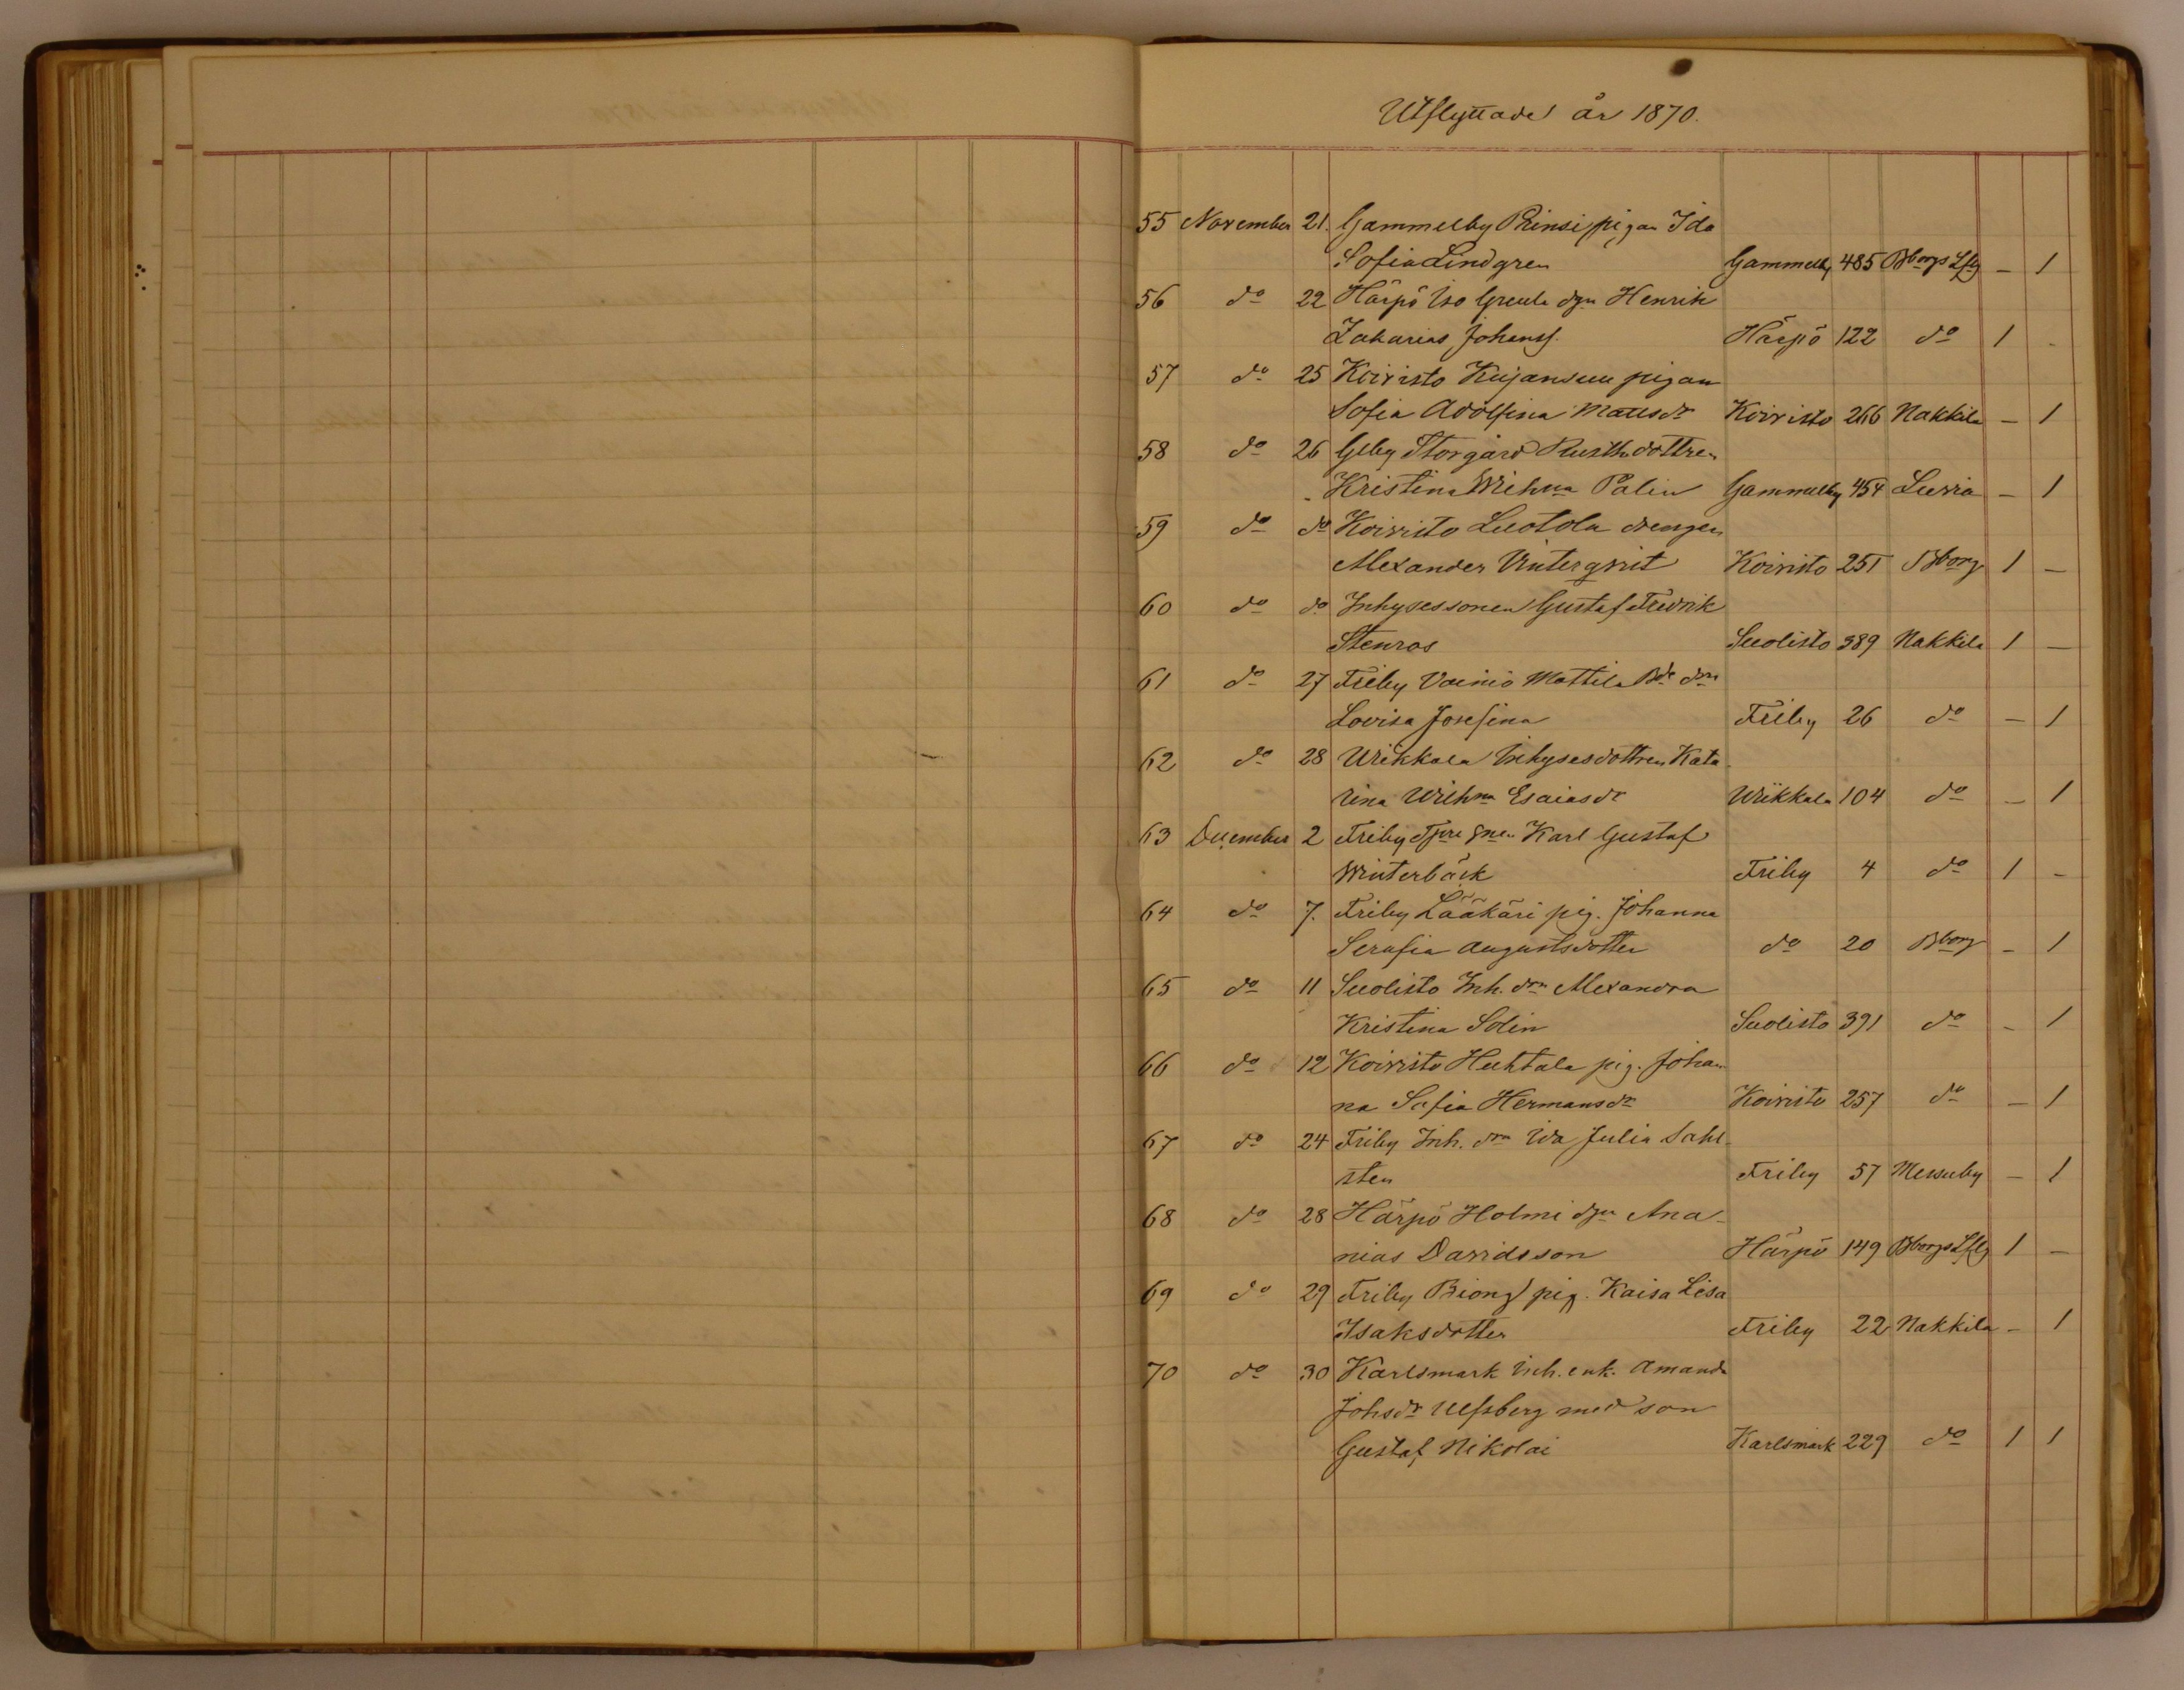 Utflyttade år 1870.
55 November 21. Gammelby Prinsi pigan Ida
Sofia Lindgren Gammelby 485 Bborgs Lfg — 1
56 do 22 Härpö Iso Greula dgn Henrik
Zakarias Johanss. Härpö 122 do 1 -
57 do 25 Koivisto Kujansuu pigan
Sofia Adolfina Mattsdr Koivisto 266 Nakkila — 1
58 do 26 Glby Storgård Rusth. dottren
Kristina Wilhna Palin Gammelby 454 Luvia — 1
59 do do Koivisto Luotola drengen
Alexander Vinterqvist Koivisto 251 Bborg 1 —
60 do do Inhysessonen Gustaf Fredrik
Stenros Suolisto 389 Nakkila 1 —
61 do 27 Friby Vainio Mattila Bde drn
Lovisa Josefina Friby 26 do — 1
62 do 28 Wiikkala Inhysesdottren Kata
rina Wilhna Esaiasdr Wiikkala 104 do — 1
63 December 2 Friby Karl Gustaf
Winterbäck Friby 4 do 1 -
64 do 7. Friby Lääkäri pig. Johanna
Serafia Augustsdotter do 20 Bborg - 1
65 do 11 Suolisto Inh. drn Alexandra
Kristina Solin Suolisto 391 do - 1
66 do 12 Koivisto Huhtala pig. Johan
na Sofia Hermansdr Koivisto 257 do — 1
67 do 24 Friby Inh. drn Ida Julia Sahl
sten Friby 57 Messuby — 1
68 do 28 Härpö Holmi dgn Ana-
nias Davidsson Härpö 149 Bborgs Lfg 1 —
69 do 29 Friby Biong pig. Kaisa Lisa
Isaksdotter Friby 22 Nakkila - 1
70 do 30 Karlsmark inh. enk. Amanda
Johsdr Ulfsberg med son
Gustaf Nikolai Karlsmark 229 do 1 1